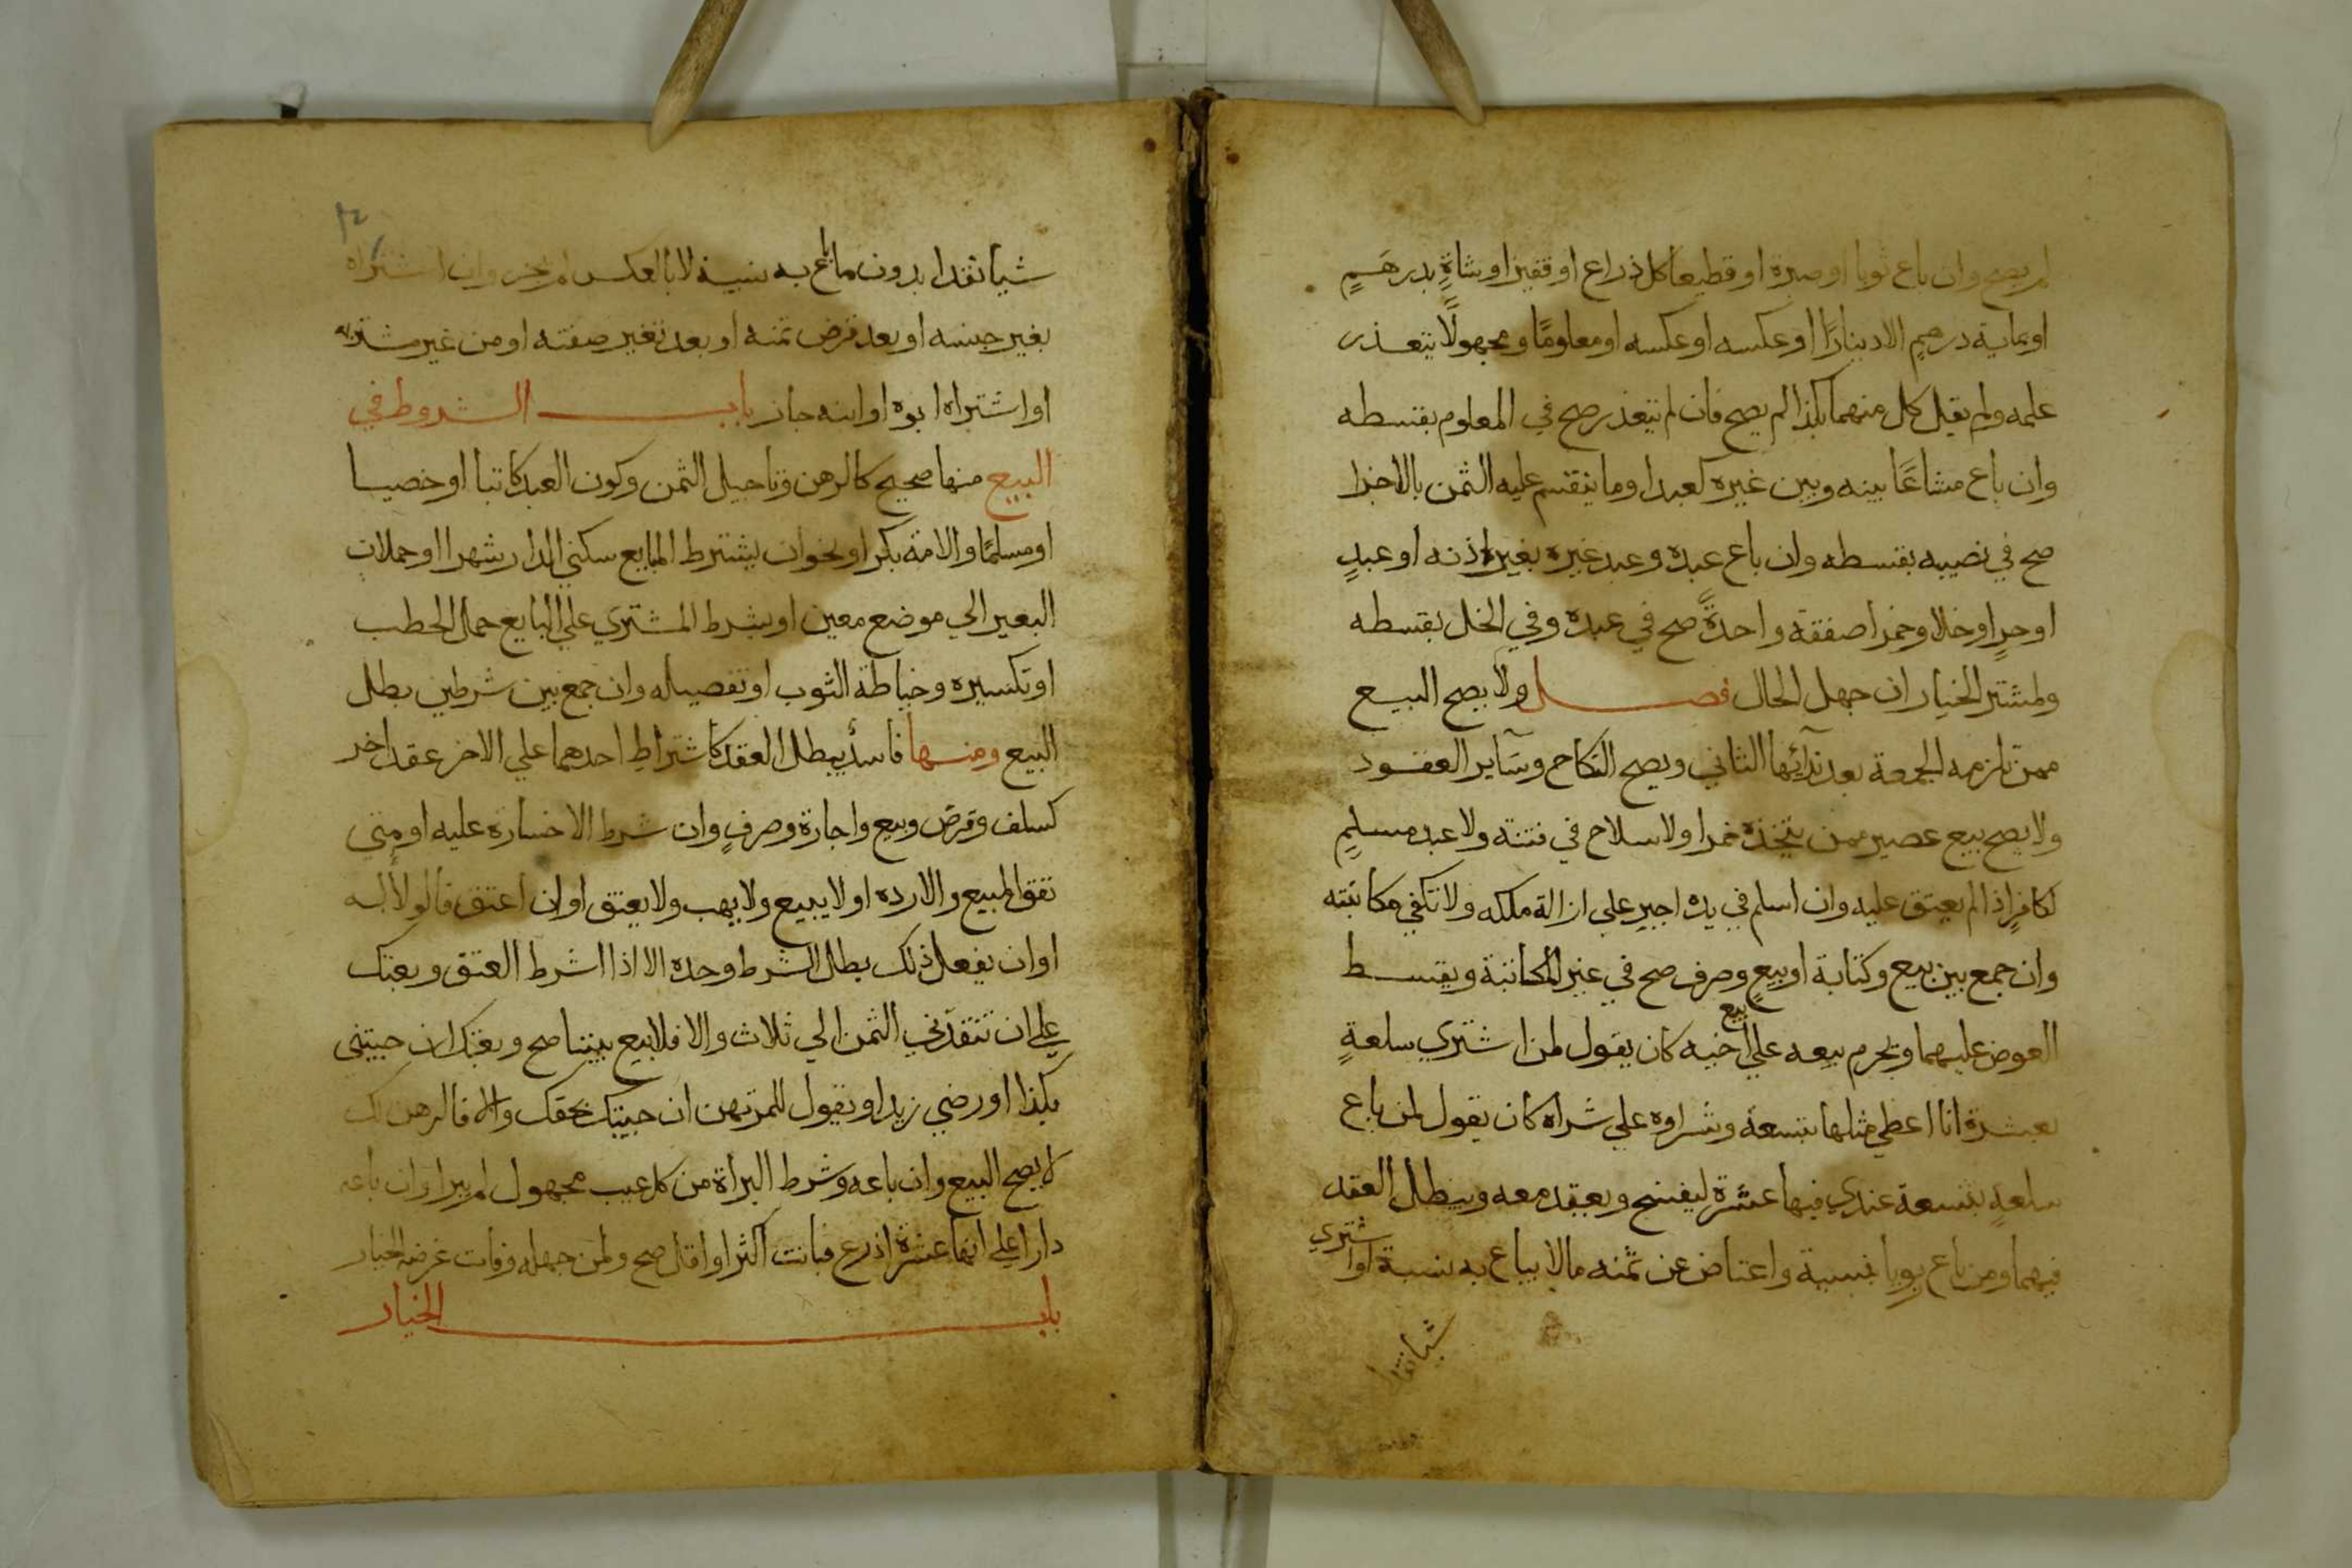 لم يصح وان باع ثوبا او صبرة او قطيعا كل ذراع او قفيز او شاةٍ بدرهمٍ
او بماية درهمٍ الا دينارًا او عكسه او عكسه او معلومًا ومجهولًا يتعذر
علمه ولم يقل كل منهما بكذا لم يصح فان لم يتعذر صح في المعلوم بقسطه
وان باع مشاعًا بينه وبين غيره كعبد او ما ينقسم عليه الثمن بالاجزا
صح في نصيبه بقسطه وان باع عبده وعبد غيره بغير اذنه او عبدٍ
او حرٍ او خلا وخمرا صفقة واحدةً صح في عبده وفي الخل بقسطه
ولمشتر الخيار ان جهل الحال فصل ولا يصح البيع
ممن تلزمه الجمعة بعد ندآئها الثاني ويصح النكاح وسآير العقود
ولا يصح بيع عصير ممن يتخذه خمرا ولا سلاح في فتنة ولا عبد مسلمٍ
لكافرٍ اذا لم يعتق عليه وان اسلم في يده اجبر علي ازالة ملكه ولا تكفي مكاتبته
وان جمع بين بيع وكتابة او بيعٍ وصرف صح في غير المكاتبة ويقسط
العوض عليهما ويحرم بيعه علي بيع اخيه كان يقول لمن اشتري سلعةٍ
بعشرة انا اعطي مثلها بتسعة وشراوه علي شراه كان يقول لمن باع
سلعةٍ بتسعة عندي فيها عشرة ليفسخ ويعقد معه ويبطل العقد
فيهما ومن باع ربويا بنسية واعتاض عن ثمنه مالا يباع به نسية او اشتري
شيا نقدا
شيا نقدا بدون ما باع به نسية لا بالعكس لم يجز وان اشتراه
بغير جنسه او بعد قرض ثمنه او بعد تغير صفته او من غير مشتريه
او اشتراه ابوه او ابنه جاز باب الشروط في
البيع منها صحيح كالرهن وتاجيل الثمن وكون العبد كاتبا او خصيا
او مسلمًا والامة بكرا ونحو ان يشترط البايع سكني الدار شهرا او حملان
البعير الي موضع معين او يشرط المشتري علي البايع حمل الحطب
او تكسيره وخياطة الثوب او تفصيله وان جمع بين شرطين بطل
البيع ومنها فاسدٌ يبطل العقد كاشتراطِ احدهما علي الاخر عقد اخر
كسلف وقرض وبيع واجارة وصرفٍ وان شرط الا خسارة عليه او متي
نفق المبيع والا رده او لا يبيع ولا يهب ولا يعتق او ان اعتق فالولا له
او ان يفعل ذلك بطل الشرط وحده الا اذا اشرط العتق وبعتك
علي ان تنقدني الثمن الي ثلاث والا فلا بيع بيننا صح وبعتك ان جيتني
بكذا او رضي زيد او يقول للمرتهن ان جيتك بحقك والا فالرهن لك
لا يصح البيع وان باعه وشرط البراة من كل عيب مجهول لم يبرا وان باعه
دارا علي انها عشرة اذرع فبانت اكثر او اقل صح ولمن جهله وفات غرضه الخيار
باب الخيار